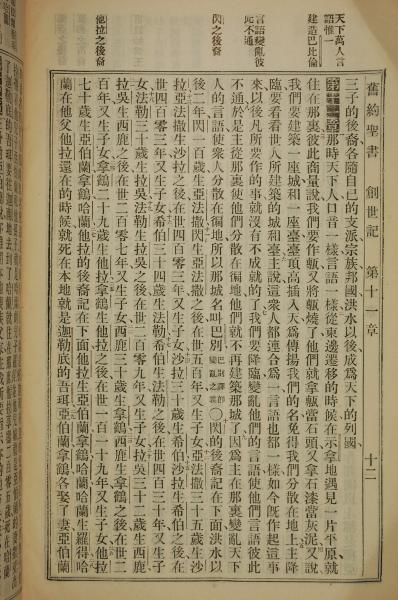 天下萬人言
語惟一
建造巴比倫
言語變亂彼
此不通
閃之後裔
他拉之後裔
舊約聖書 創世記 第十一章 十二
三子的後裔各隨自己的支派宗族邦國洪水以後成為天下的列國
那時天下人口音一樣言語一樣從東邊遷移的時候在示拿地遇見一片平原就
住在那裏彼此商量說我們要作甎又將甎燒了他們就拿甎當石頭又拿石漆當灰泥又說
我們要建築一座城和一座臺臺頂高插入天為傳揚我們的名免得我們分散在地上主降
臨要看看世人所建築的城和臺主說這眾人都連合為一言語也都一樣如今旣作起這事
來以後凡所要作的事就沒有不成就的了我們要降臨變亂他們的言語使他們言語彼此
不通於是主從那裏使他們分散在徧地他們就不再建築那城了因為主在那裏變亂天下
人的言語使眾人分散在徧地所以那城名叫巴別 巴別譯即變亂之義 〇閃的後裔記在下面洪水以
後二年閃一百歲生亞法撒閃生亞法撒之後在世五百年又生子女亞法撒三十五歲生沙
拉亞法撒生沙拉之後在世四百零三年又生子女沙拉三十歲生希伯沙拉生希伯之後在
世四百零三年又生子女希伯三十四歲生法勒希伯生法勒之後在世四百三十年又生子
女法勒三十歲生拉吳法勒生拉吳之後在世二百零九年又生子女拉吳三十二歲生西鹿
拉吳生西鹿之後在世二百零七年又生子女西鹿三十歲生拿鶴西鹿生拿鶴之後在世二
百年又生子女拿鶴二十九歲生他拉拿鶴生他拉之後在世一百一十九年又生子女他拉
七十歲生亞伯蘭拿鶴哈蘭他拉的後裔記在下面他拉生亞伯蘭拿鶴哈蘭哈蘭生羅得哈
蘭在他父他拉還在的時候就死在本地就是迦勒底的吾珥亞伯蘭拿鶴各娶了妻亞伯蘭